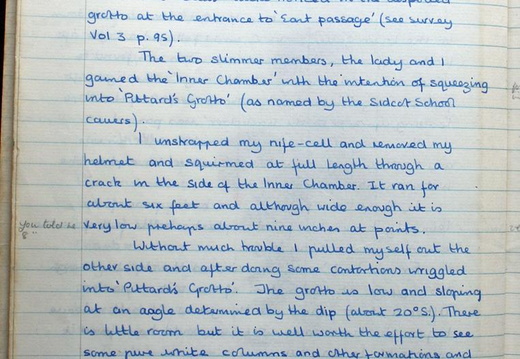 grotto at the entrance to 'East passage' (see survey
Vol 3 p. 95).
The two slimmer members, the lady and I
gained the 'Inner Chamber' with the intention of squeezing
into 'Pittard's Grotto' (as named by the Sidcot School
cavers).
I unstrapped my nife-cell and removed my
helmet and squirmed at full length through a
crack in the side of the Inner Chamber. It ran for
about six feet and although wide enough it is
very low prehaps about nine inches at points.
you told us
8"
Without much trouble I pulled myself out the
other side and after doing some contortions wriggled
into 'Pittard's Grotto'. The grotto is low and sloping
at an angle determined by the dip (about 20°S.). There
is little room but it is well worth the effort to see
some pure white columns and other formations and